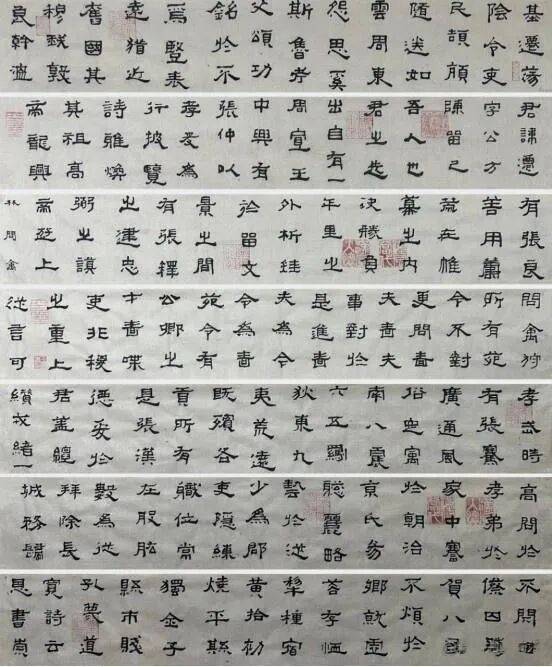 基遷蕩
陰令吏
民頡頏
隨送如
雲周東
怨思奚
斯魯考
父頌功
銘於不
豎表
遠猶近
舊國其
穆我敦
良幹
君諱遷
字公方
陳留己
吾人也
君之先
出自有一
周宣王
中興有
張仲以
孝友為
行披覽
詩雅煥
其祖高
帝龍興
有張良
善用籌
策在帷
幕之內
決勝負
千里之
外析珪
於留文
景之間
有張釋
之建忠
弼之謨
帝遊上
林問禽
問禽狩
所有苑
令不對
更問嗇
夫嗇夫
事對於
是進嗇
夫為令
令為
苑令有
公卿之
才嗇喋
吏非稷
之重上
從言可
孝武時
有張騫
廣通風
俗寓
南八蠻
六羈
狄東九
夷荒遠
既殯各
貢所有
是張漢
德爰於
君蓋纏
纘戎緒一
高問於
孝弟於
家中謇
於朝治
京氏易
聰麗略
藝於從
少為郡
吏隱練
職位常
在股肱
數為從
拜除長
城務
不閉四
僚四
賀八國
不煩於
鄉就虛
落存恤
犁種宿
黃拾劫
燒平縣
獨全子
縣市賤
孔蔑道
實詩云
恩書崇